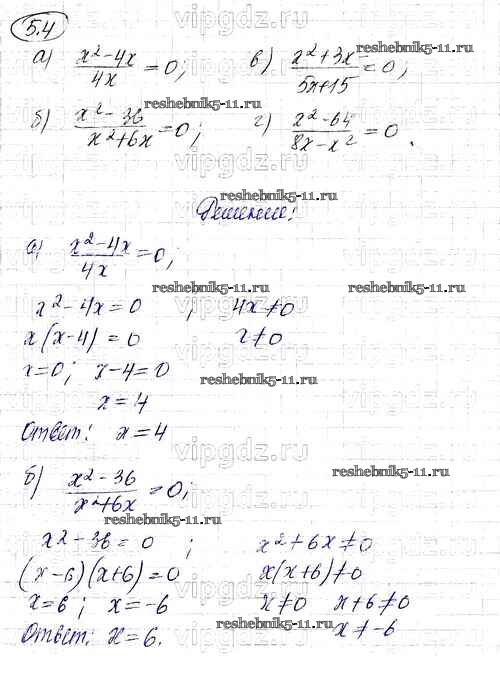 5.4
а) (x²-4x)/(4x) = 0; в) (x²+3x)/(5x+15) = 0;
б) (x²-36)/(x²+6x) = 0; г) (x²-64)/(8x-x²) = 0.
Решение:
а) (x²-4x)/(4x) = 0;
x²-4x=0 ; 4x≠0
x(x-4)=0 x≠0
x=0; x-4=0
x=4
Ответ: x=4
б) (x²-36)/(x²+6x) = 0;
x²-36=0 ; x²+6x≠0
(x-6)(x+6)=0 x(x+6)≠0
x=6; x=-6 x≠0 x+6≠0
Ответ: x=6. x≠-6
vipgdz.ru
reshebnik5-11.ru